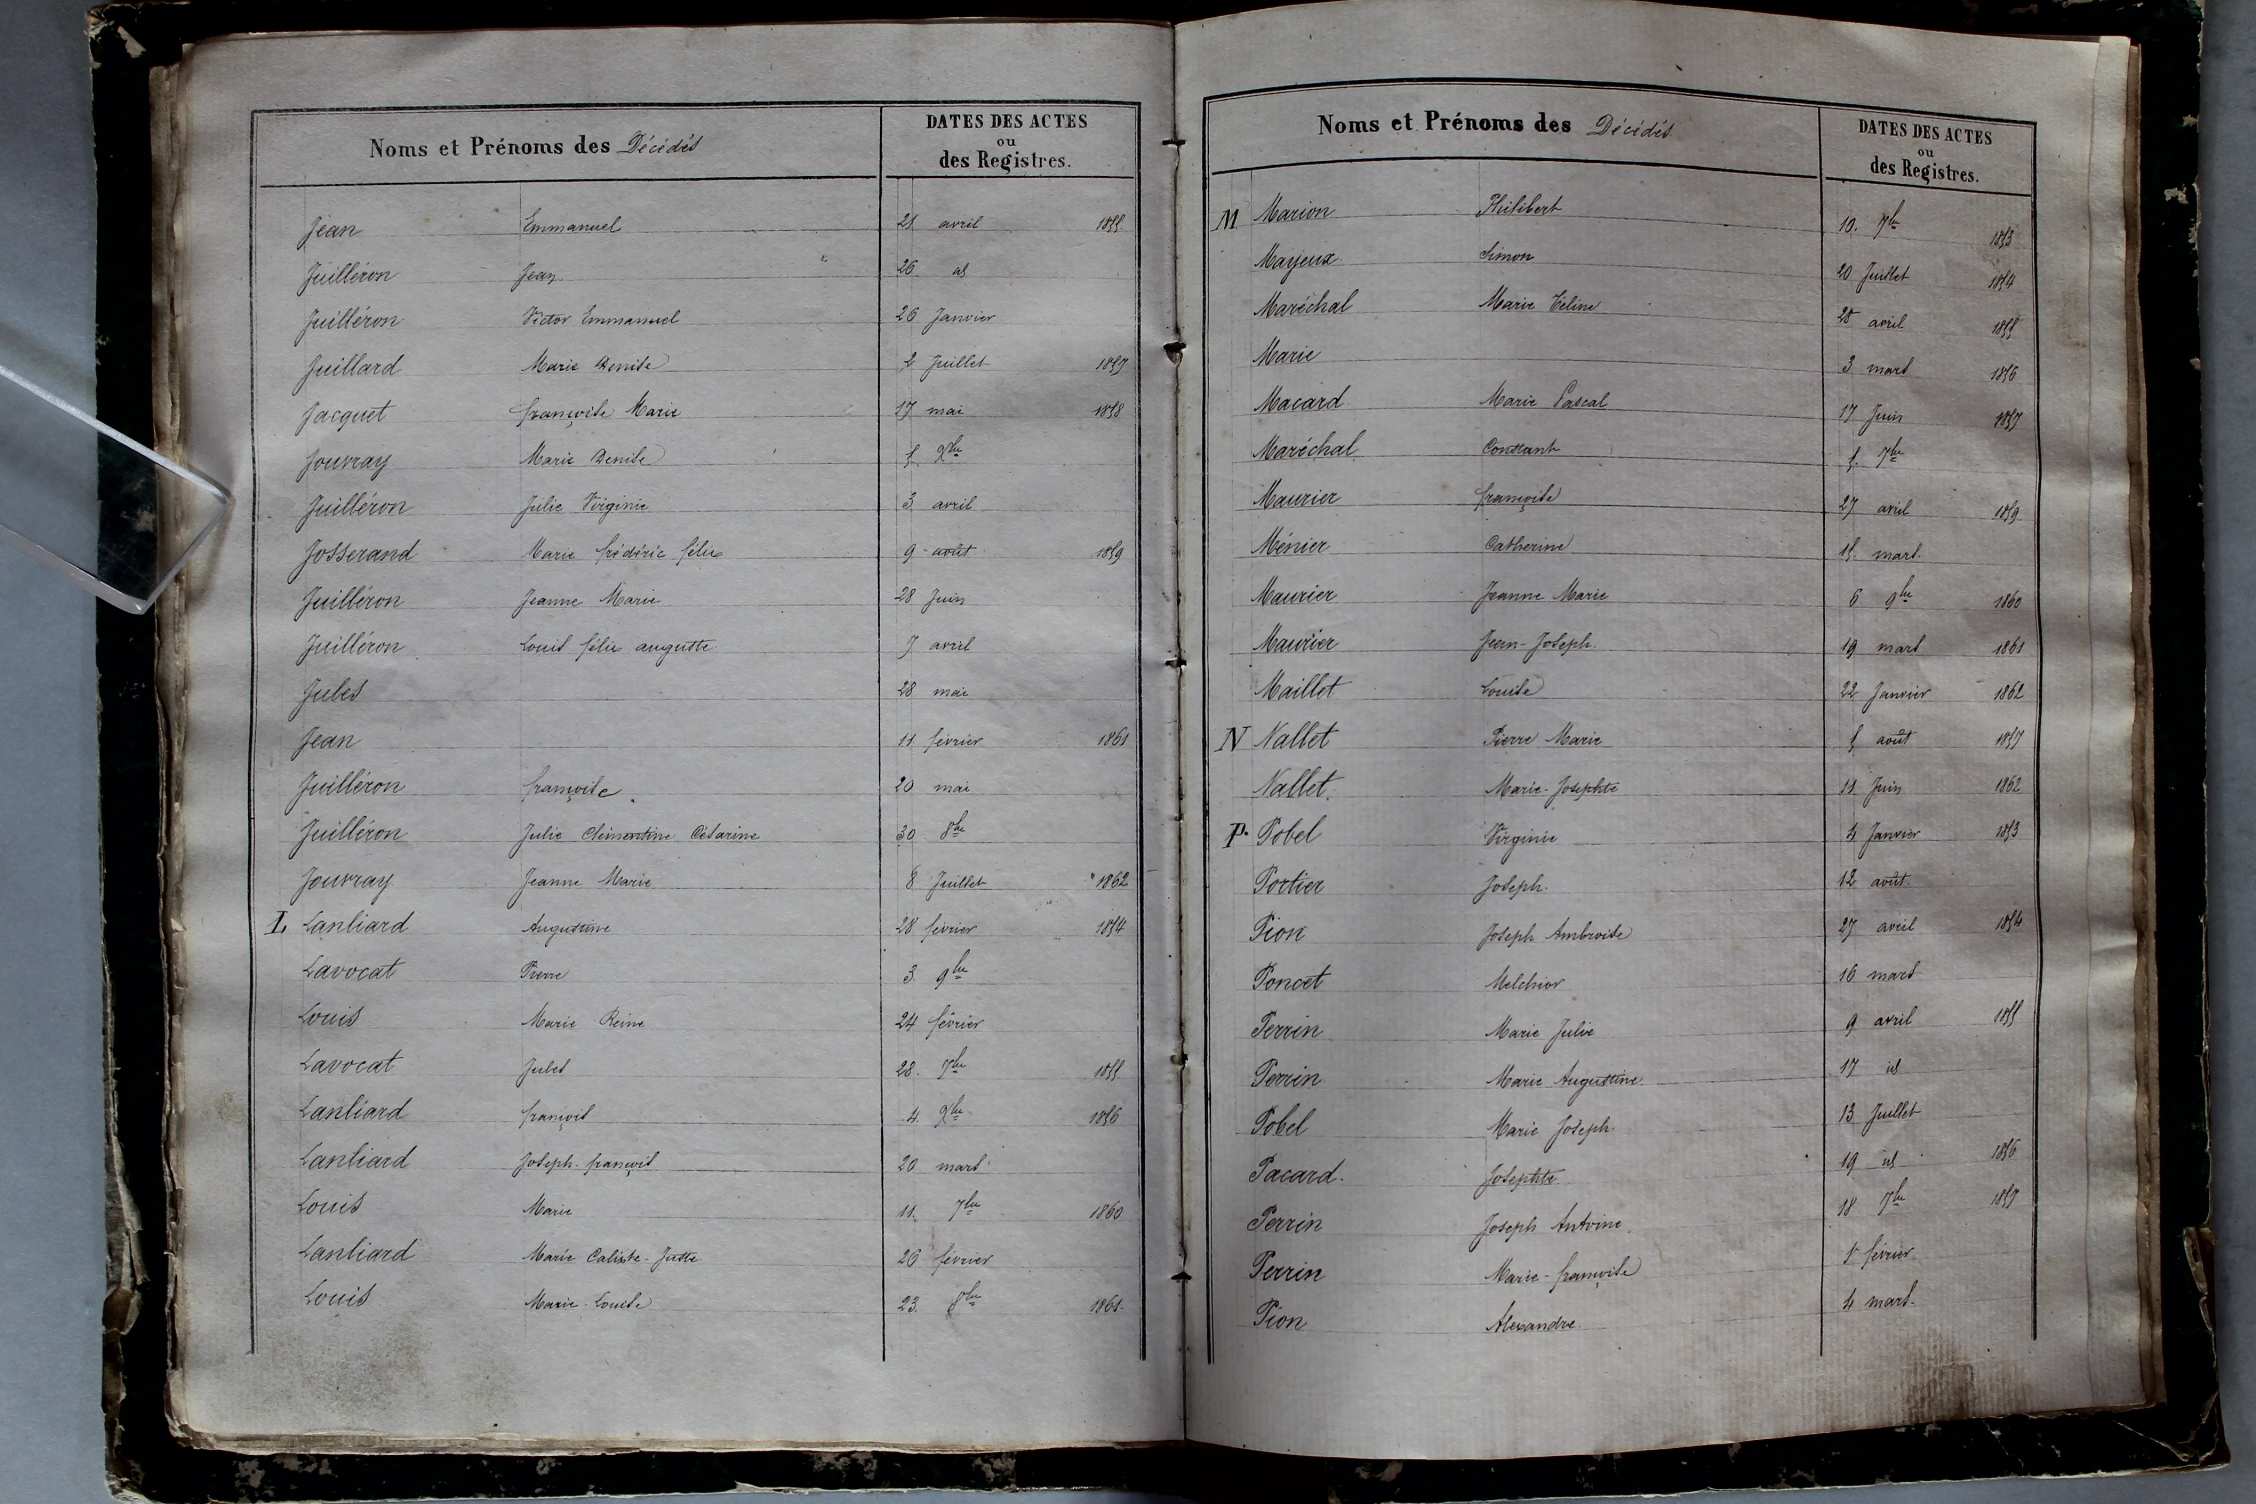 Noms et Prénoms des Décédés DATES DES ACTES
ou
des Registres.
Jean Emmanuel 21 avril 1855
Juilléron Jean 26 id
Juilléron Victor Emmanuel 26 Janvier
Juillard Marie Denise 2 Juillet 1857
Jacquet françoise Marie 17 mai 1858
Jouvray Marie Denise 5 Xbre
Juilléron Julie Virginie 3 avril
Josserand Marie frédéric félix 9 août 1859
Juilléron Jeanne Marie 28 Juin
Juilléron Louis félix auguste 7 avril
Jules 28 mai
Jean 11 février 1861
Juilléron françoise 20 mai
Juilléron Julie Clémentine Césarine 30 8bre
Jouvray Jeanne Marie 8 Juillet 1862
L Lanliard Augustine 28 février 1854
Lavocat Pierre 3 9bre
Louis Marie Reine 24 février
Lavocat Jules 28 7bre 1855
Lanliard françois 4 Xbre 1856
Lanliard Joseph françois 20 mars
Louis Marie 11 7bre 1860
Lanliard Marie Caliste-Juste 26 février
Louis Marie-Louise 23 8bre 1861
Noms et Prénoms des Décédés DATES DES ACTES
ou
des Registres.
M Marion Philibert 10 7bre 1853
Mayeux Simon 20 Juillet 1854
Maréchal Marie Céline 28 avril 1855
Marie 3 mars 1856
Macard Marie Pascal 17 Juin 1857
Maréchal Constant 5 7bre
Maurier françoise 27 avril 1859
Ménier Catherine 15 mars
Maurier Jeanne Marie 6 9bre 1860
Maurier Jean-Joseph 19 mars 1861
Maillet Louise 22 Janvier 1862
N Nallet Pierre Marie 5 août 1857
Nallet Marie-Josephte 11 Juin 1862
P. Pobel Virginie 4 Janvier 1853
Portier Joseph 12 août
Pion Joseph Ambroise 27 avril 1854
Poncet Melchior 16 mars
Perrin Marie Julie 9 avril 1855
Perrin Marie Augustine 17 id
Pobel Marie Joseph 13 Juillet
Pacard Josephte 19 id 1856
Perrin Joseph Antoine 18 7bre 1857
Perrin Marie-françoise 1r février
Pion Alexandre 4 mars